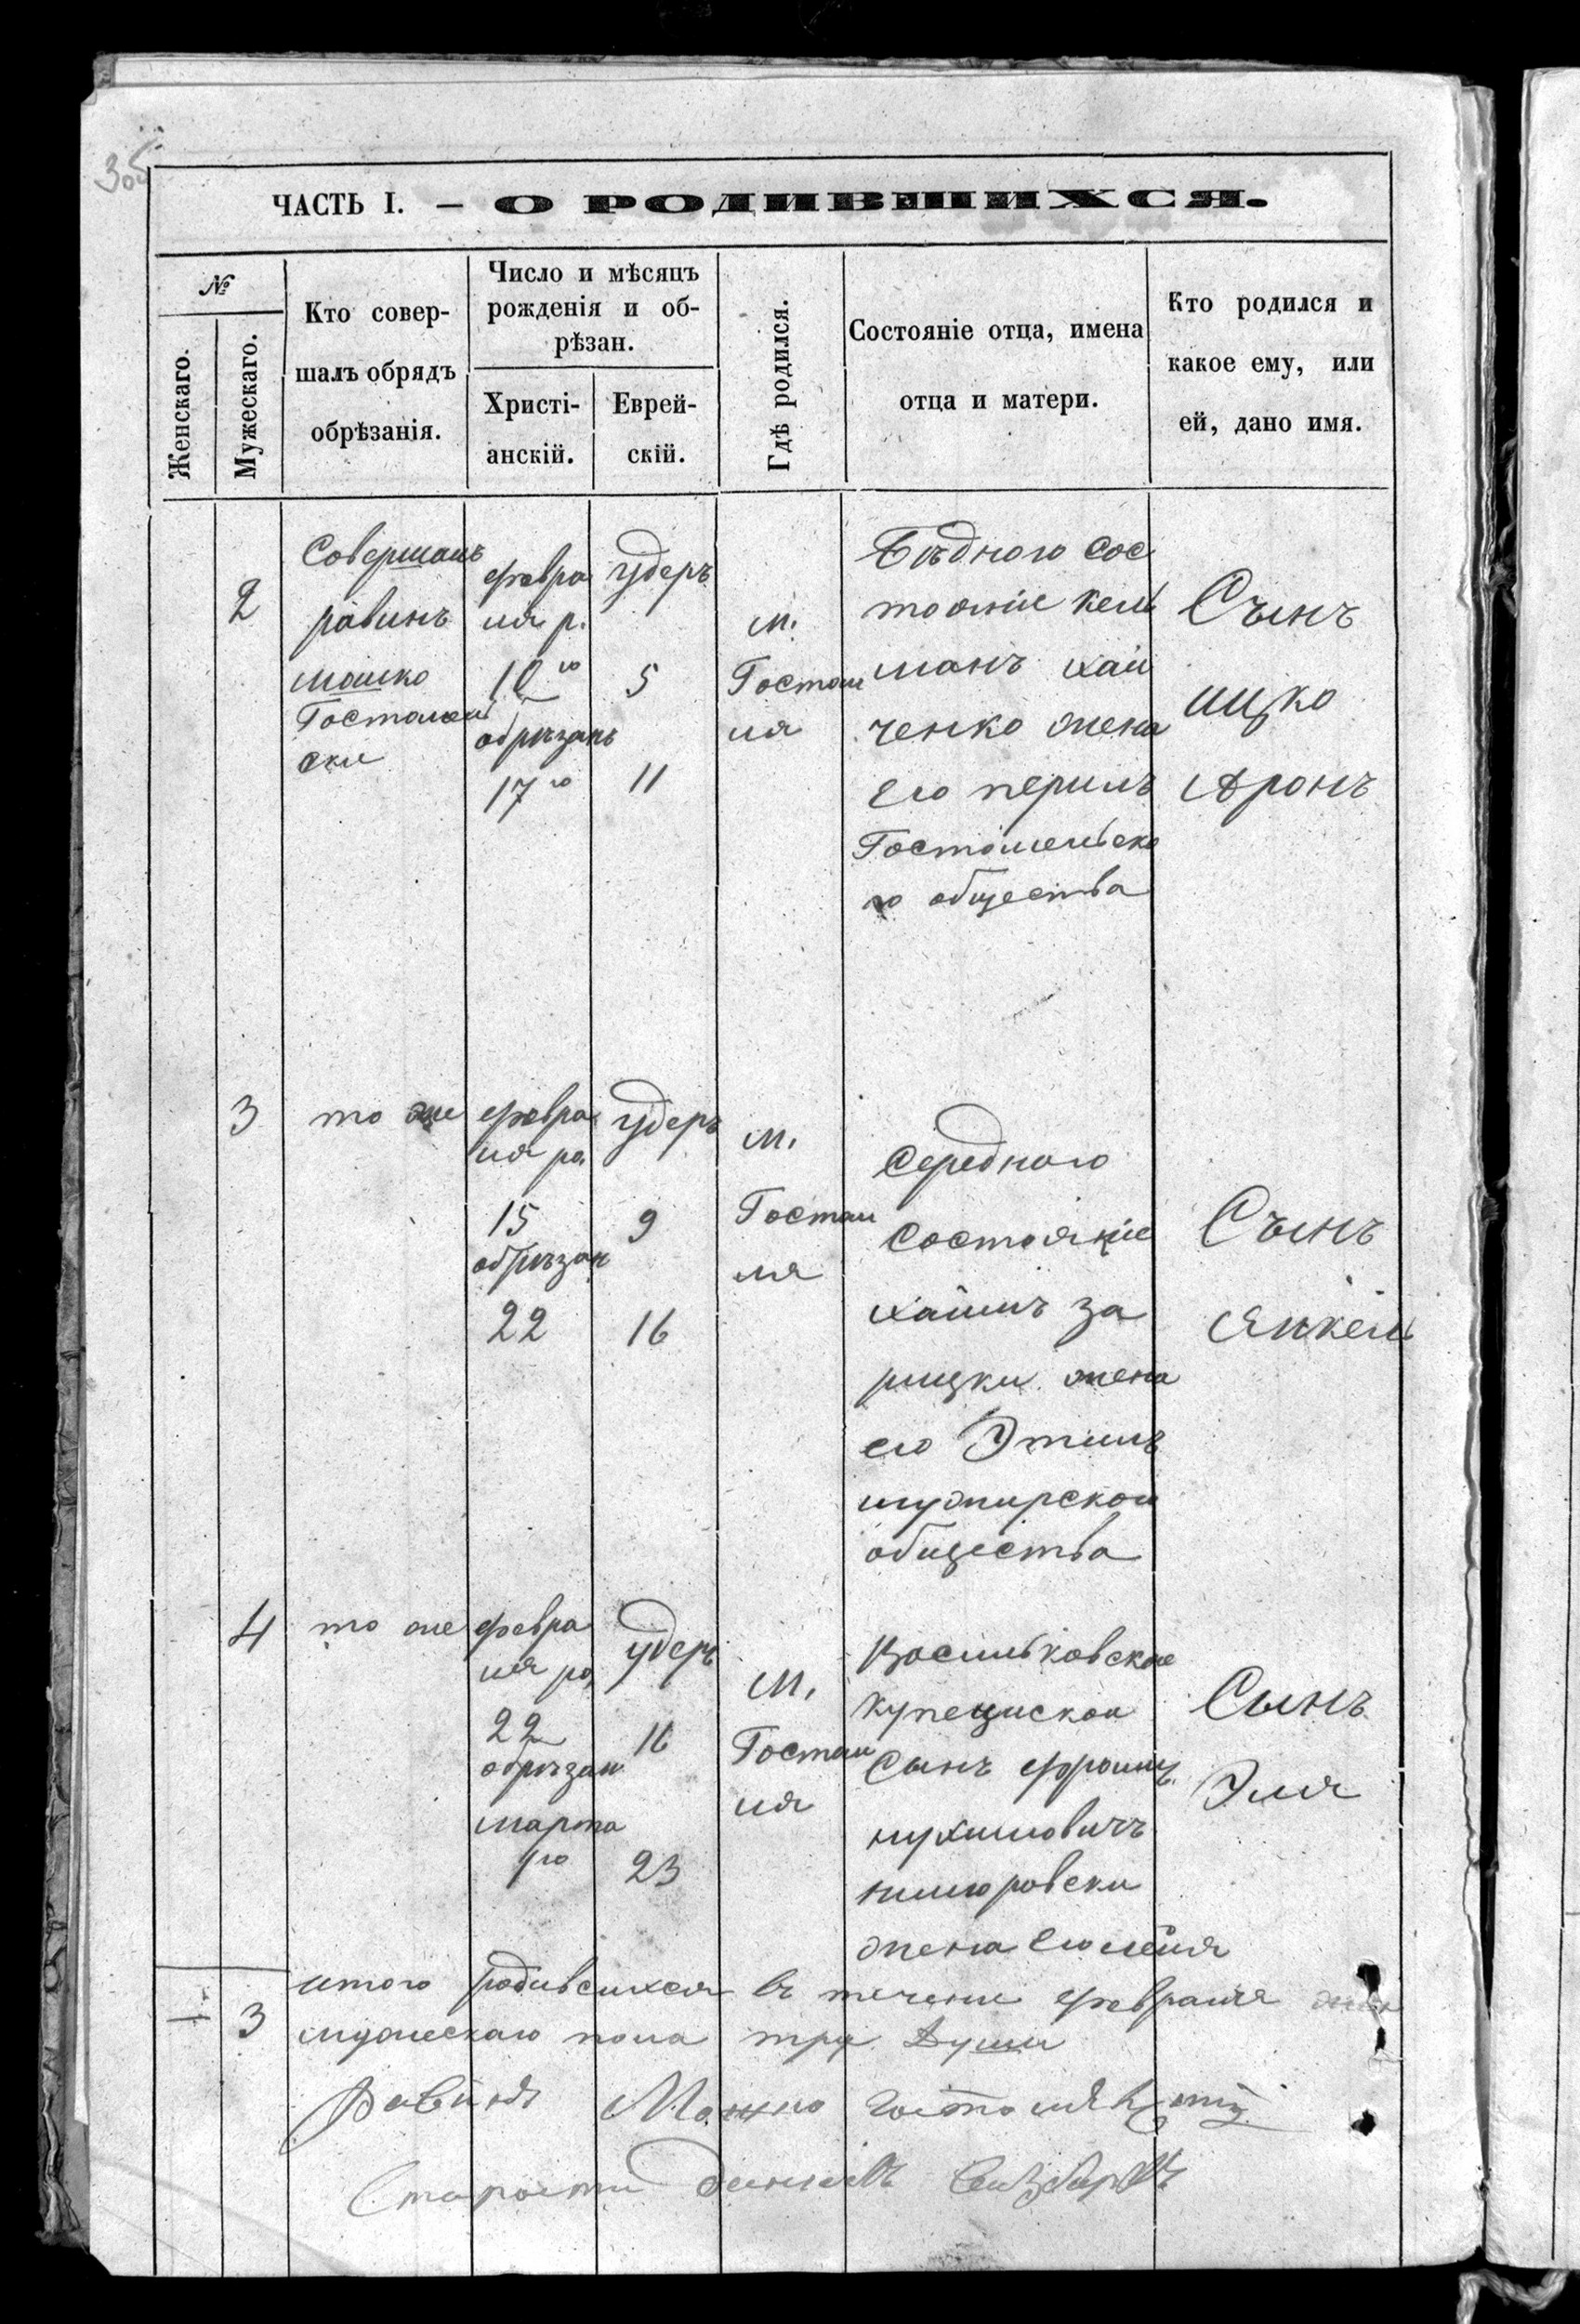 ЧАСТЬ I. — О РОДИВШИХСЯ.
№
Женскаго.
Мужескаго.
Кто совер-
шалъ обрядъ
обрѣзанія.
Число и мѣсяцъ
рожденія и об-
рѣзан.
Христі-
анскій.
Еврей-
скій.
Гдѣ родился.
Состояніе отца, имена
отца и матери.
Кто родился и
какое ему, или
ей, дано имя.
2
Совершалъ
равинъ
мошко
Гостомел
ски
февра
ля р.
10го
обрѣзань
17го
удеръ
5
11
м.
Гостом
ля
Бѣдного сос
тояніе кель
манъ хай
ченко жена
его перилъ
Гостомельско
го общества
Сынъ
ицко
Аронъ
3
то же
февра
ля ро.
15
обрѣзан
22
удеръ
9
16
м.
Гостом
ля
Середного
состояніе
хаимъ за
рицки жена
его Этилъ
общества
Сынъ
Янкель
4
то же
февра
ля ро,
22
обрѣзан
марта
1го
удеръ
16
23
м,
Гостом
ля
Васильковское
купецискои
Сынъ фроимъ
нухимовичъ
жена его
Сынъ
Эля
—
3
итого родивсихся въ течени февраля
мужескаго пола три души
Равинъ Мошко
Старости